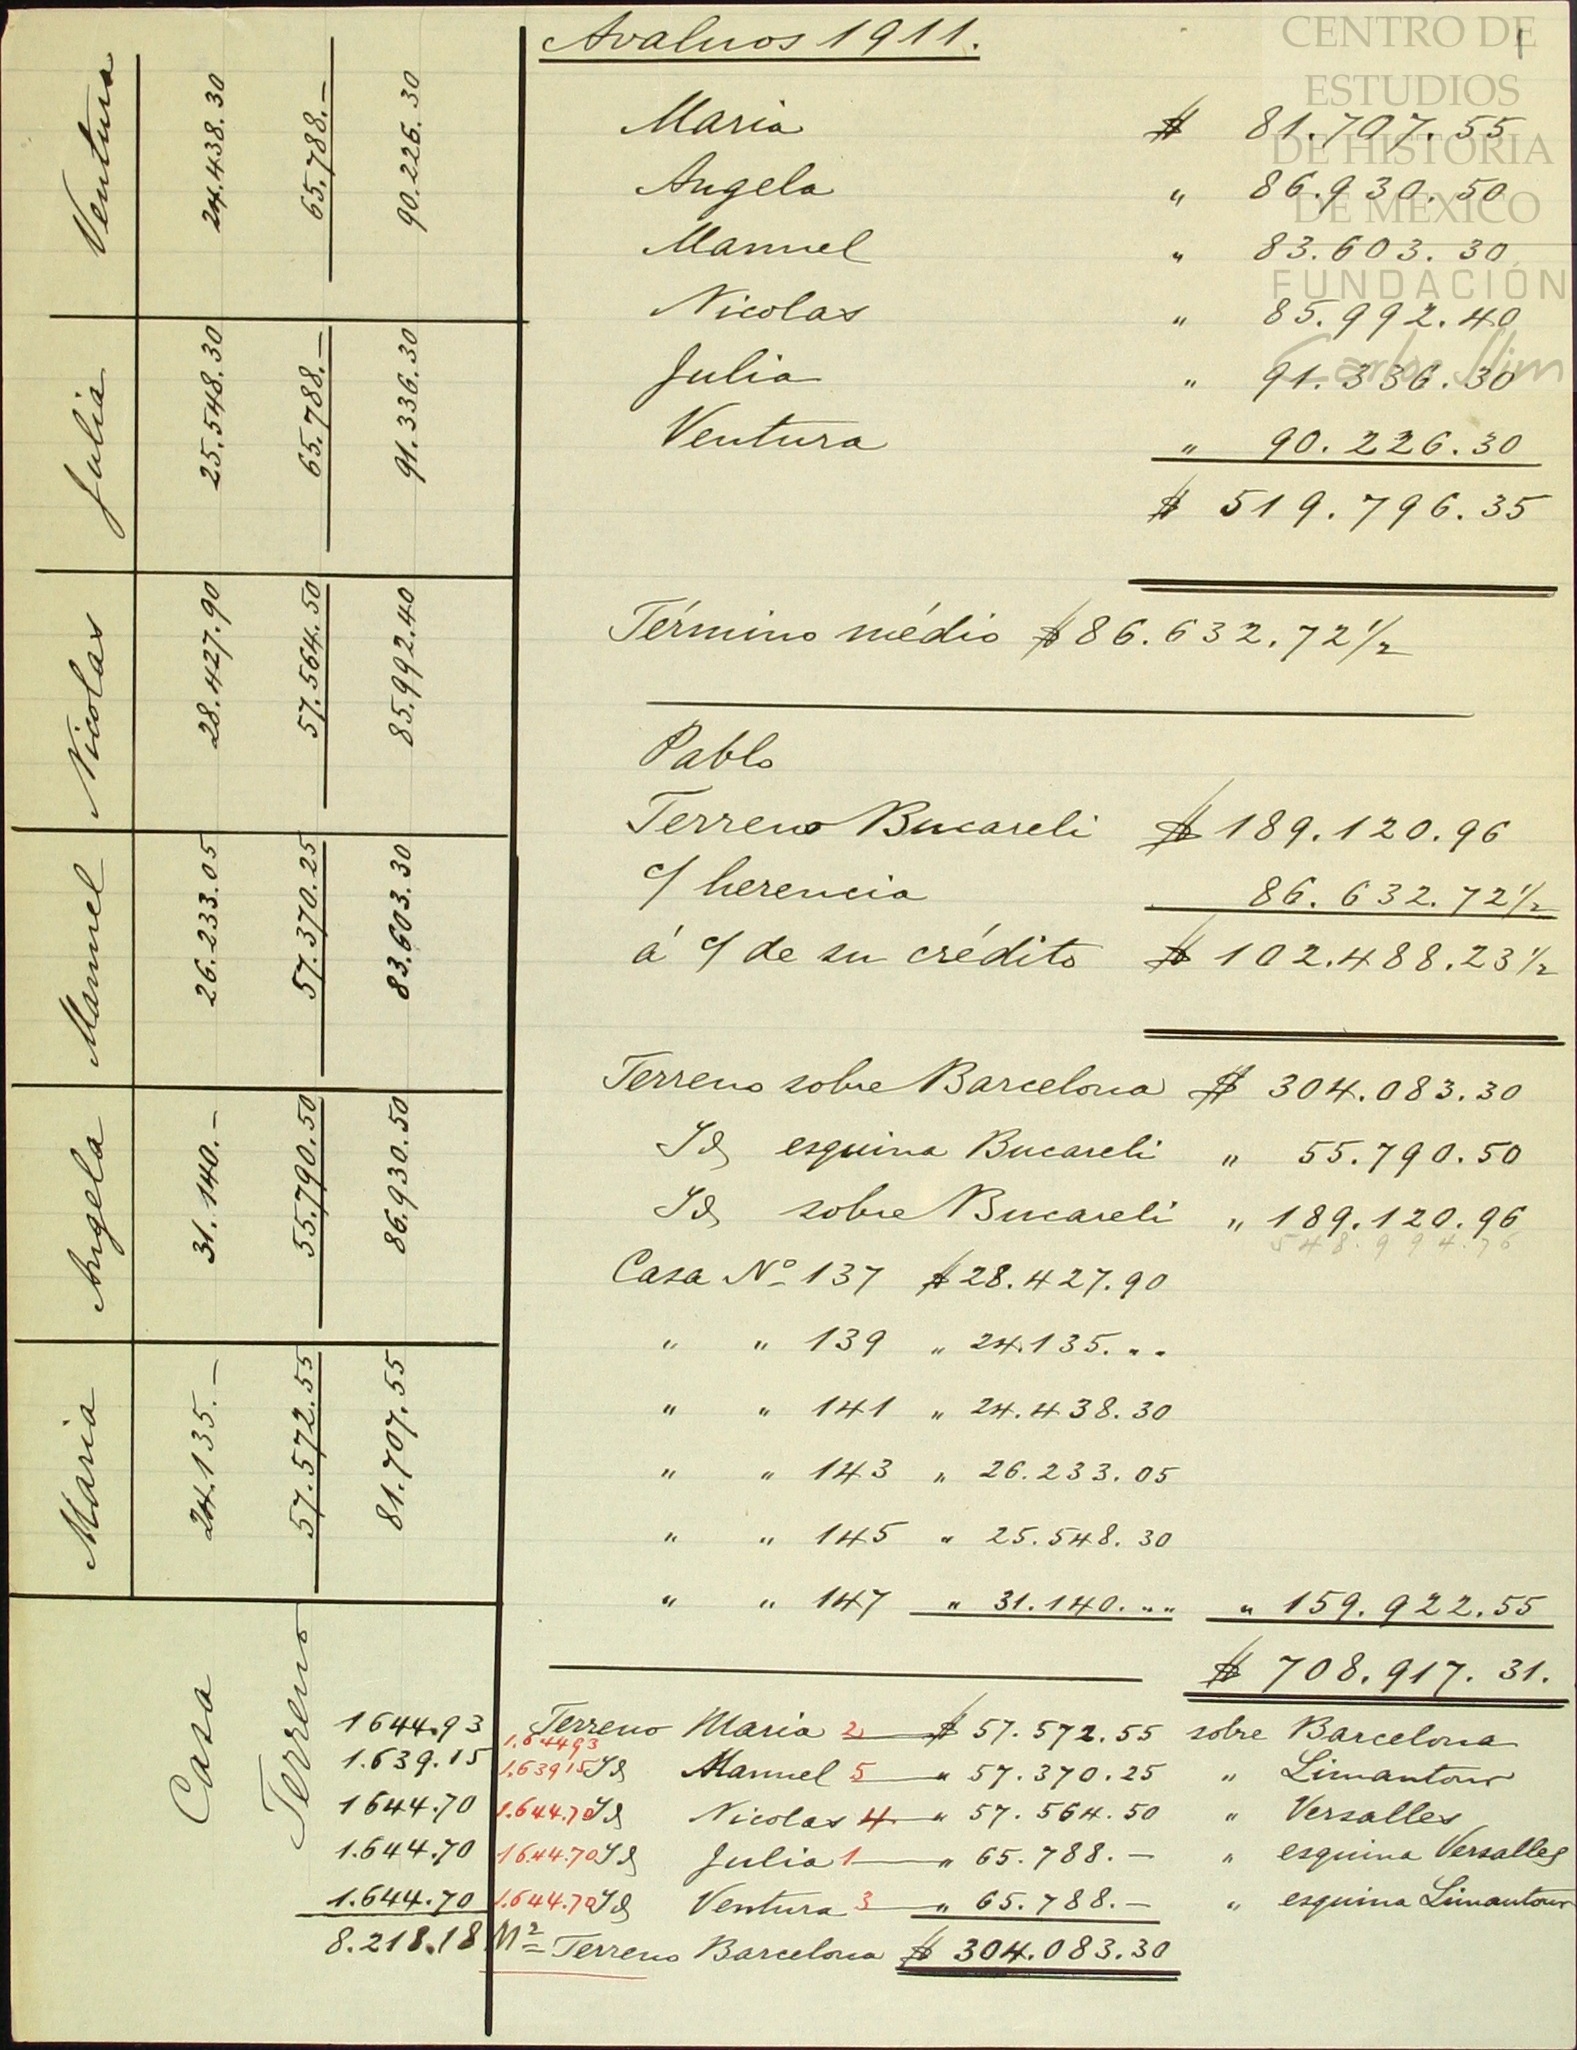 Avaluos 1911.
Maria $ 81.707.55
Angela " 86.930.50
Manuel " 83.603.30
Nicolas " 85.992.40
Julia " 91.336.30
Ventura " 90.226.30
$ 519.796.35
Término médio $ 86.632.72 1/2
Pablo
Terreno Bucareli $ 189.120.96
c/ herencia 86.632.72 1/2
á c/ de su crédito $ 102.488.23 1/2
Terreno sobre Barcelona $ 304.083.30
Id esquina Bucareli " 55.790.50
Id sobre Bucareli " 189.120.96
548.994.76
Casa Nº 137 $ 28.427.90
" " 139 " 24.135. " "
" " 141 " 24.438.30
" " 143 " 26.233.05
" " 145 " 25.548.30
" " 147 " 31.140. " " " 159.922.55
$ 708.917.31.
1644.93 1.644.93 Terreno Maria 2 $ 57.572.55 sobre Barcelona
1.639.15 1.639.15 Id Manuel 5 " 57.370.25 " Limantour
1644.70 1.644.70 Id Nicolas 4 " 57.564.50 " Versalles
1.644.70 1644.70 Id Julia 1 " 65.788.— " esquina Versalles
1.644.70 1.644.70 Id Ventura 3 " 65.788.— " esquina Limantour
8.218.18 M² Terreno Barcelona $ 304.083.30
Casa Terreno
Maria 24.135.— 57.572.55 81.707.55
Angela 31.140.— 55.790.50 86.930.50
Manuel 26.233.05 57.370.25 83.603.30
Nicolas 28.427.90 57.564.50 85.992.40
Julia 25.548.30 65.788.— 91.336.30
Ventura 24.438.30 65.788.— 90.226.30
1
CENTRO DE
ESTUDIOS
DE HISTORIA
DE MÉXICO
FUNDACIÓN
Carlos Slim